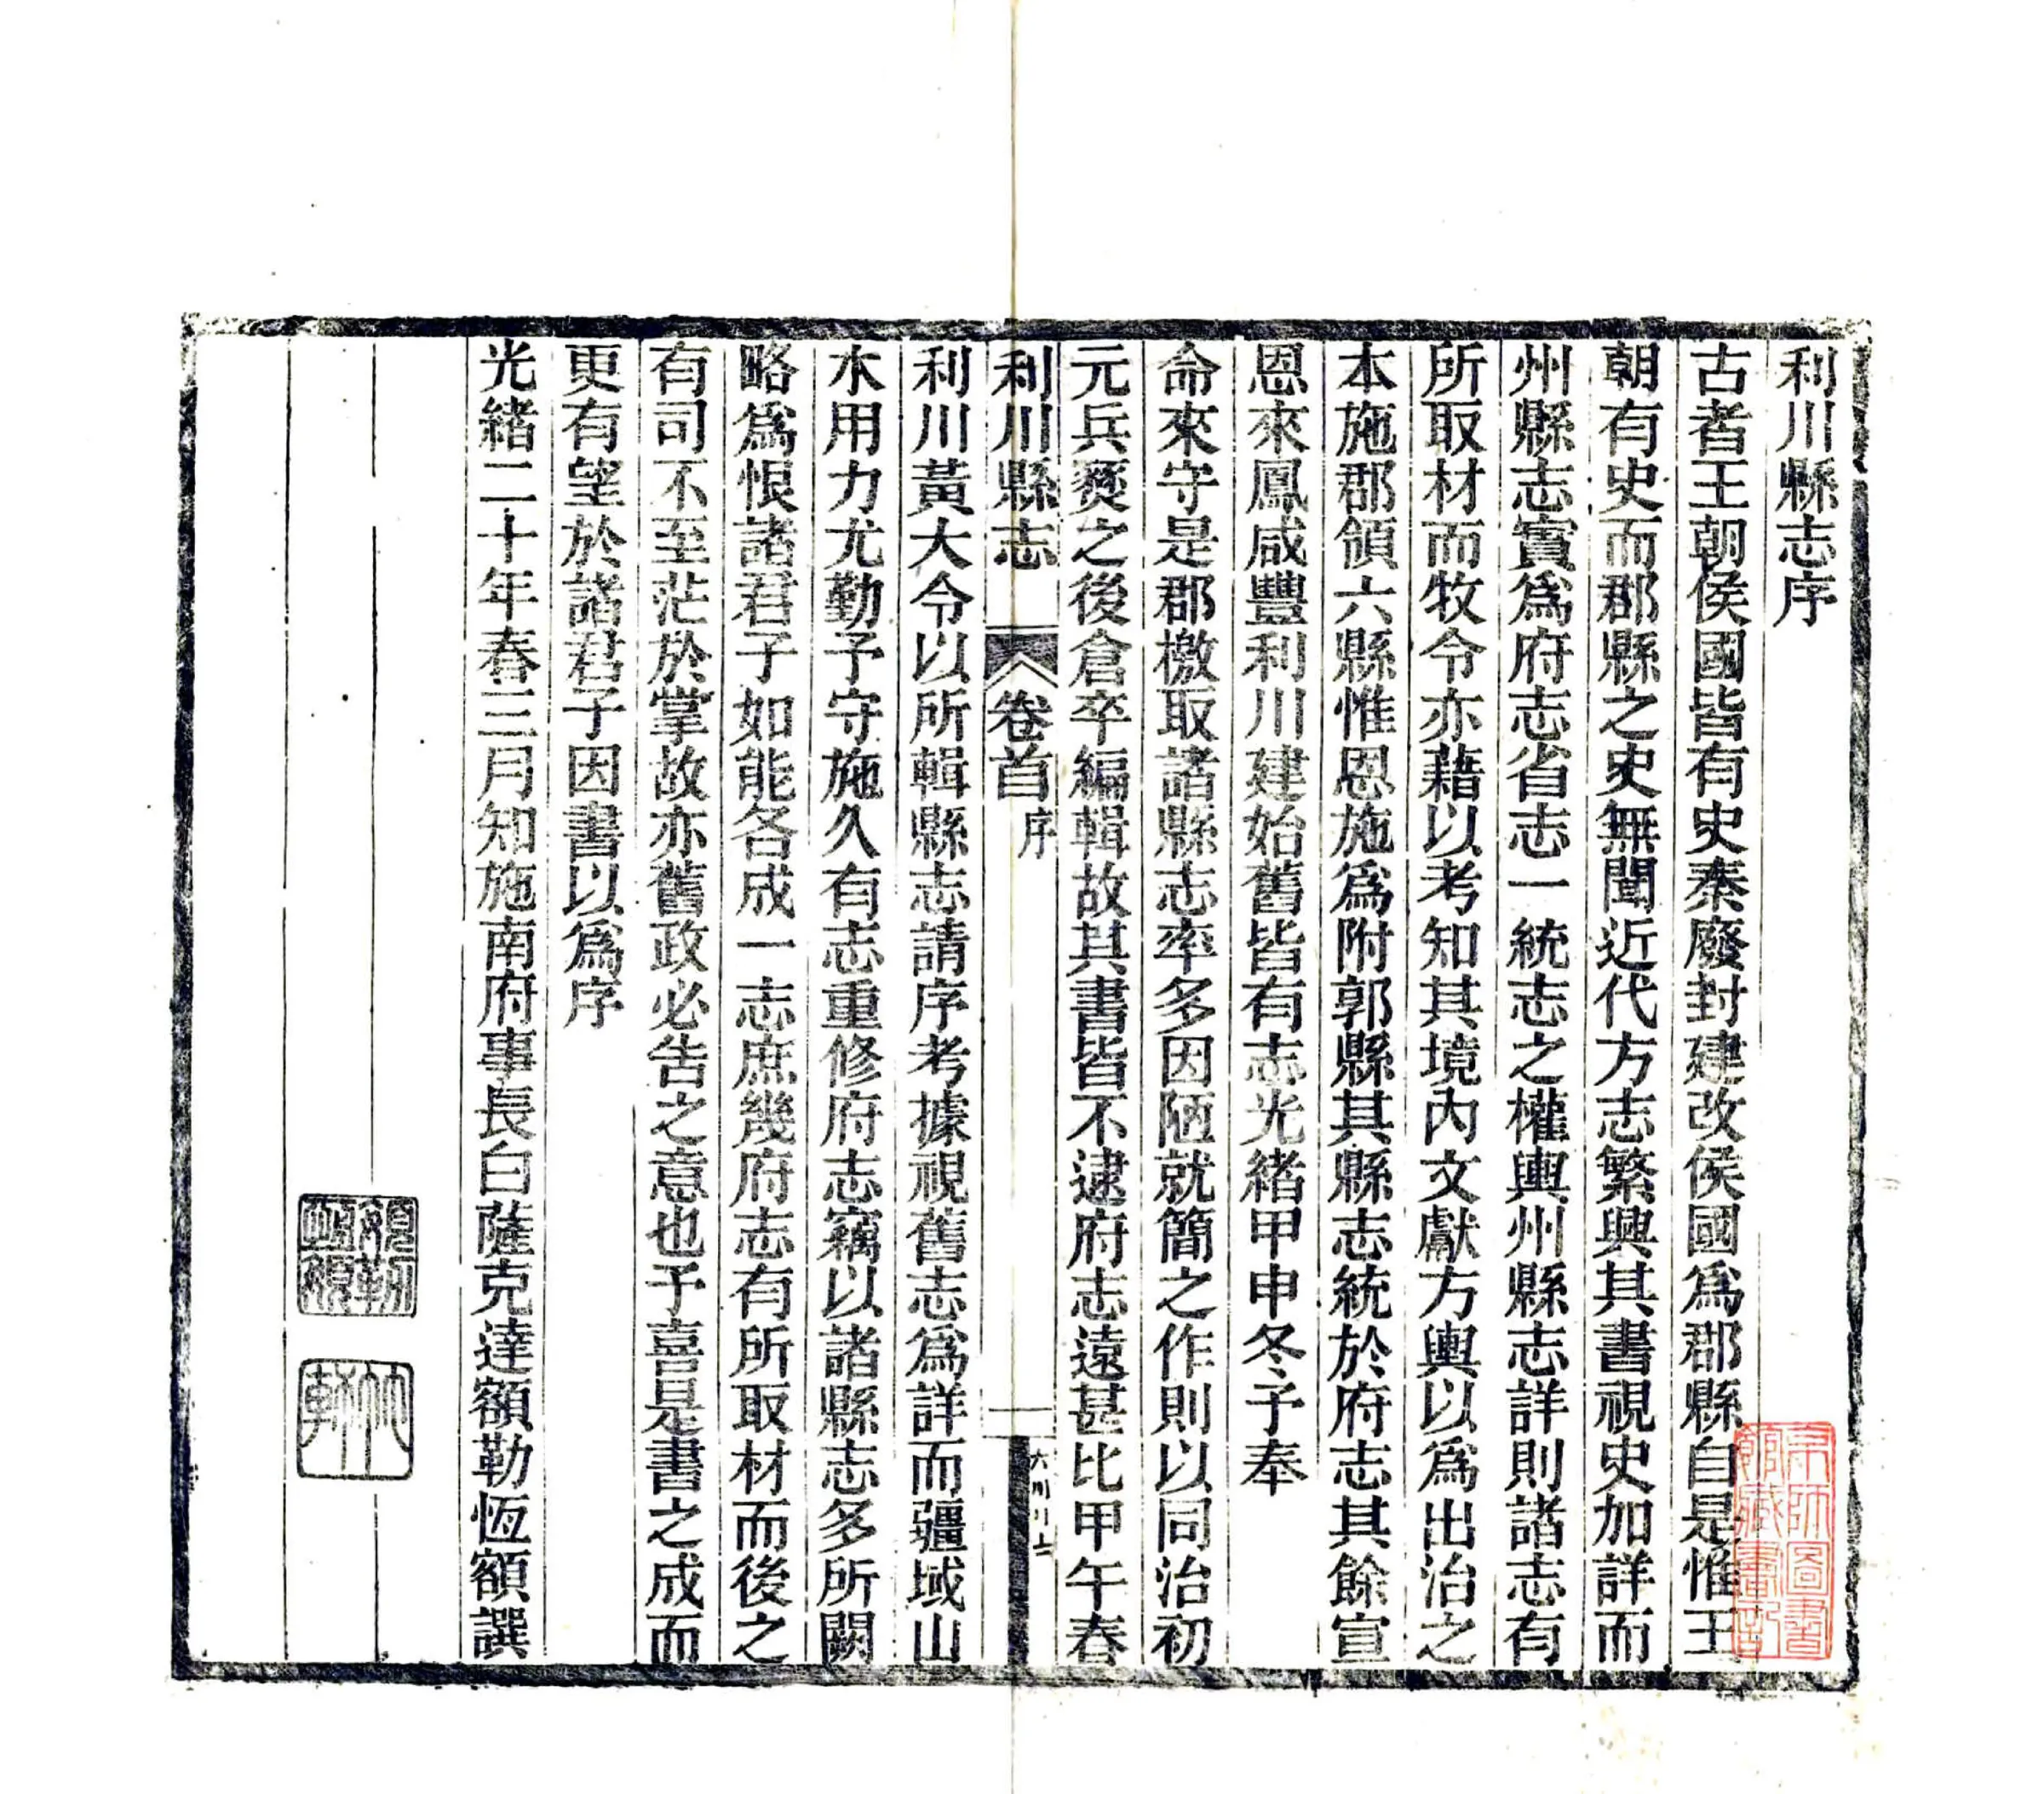 利川縣志序
古者王朝侯國皆有史秦廢封建改侯國爲郡縣自是惟王
朝有史而郡縣之史無聞近代方志繁興其書視史加詳而
州縣志實爲府志省志一統志之權輿州縣志詳則諸志有
所取材而牧令亦藉以考知其境內文獻方輿以爲出治之
本施郡領六縣惟恩施爲附郭縣其縣志統於府志其餘宣
恩來鳳咸豐利川建始舊皆有志光緒甲申冬予奉
命來守是郡檄取諸縣志率多因陋就簡之作則以同治初
元兵燹之後倉卒編輯故其書皆不逮府志遠甚比甲午春
利川縣志 卷首 序
利川黃大令以所輯縣志請序考據視舊志爲詳而疆域山
水用力尤勤予守施久有志重修府志竊以諸縣志多所闕
略爲恨諸君子如能各成一志庶幾府志有所取材而後之
有司不至茫於掌故亦舊政必告之意也予喜是書之成而
更有望於諸君子因書以爲序
光緒二十年春三月知施南府事長白薩克達額勒恆額譔
京師圖書
館藏書記